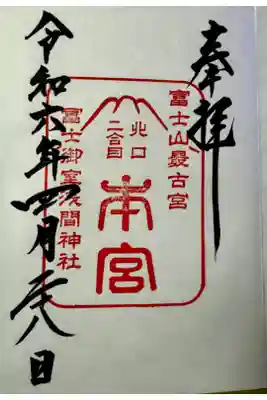 奉拝
富士山最古宮
北口
二合目
本宮
冨士御室浅間神社
令和六年四月廿八日